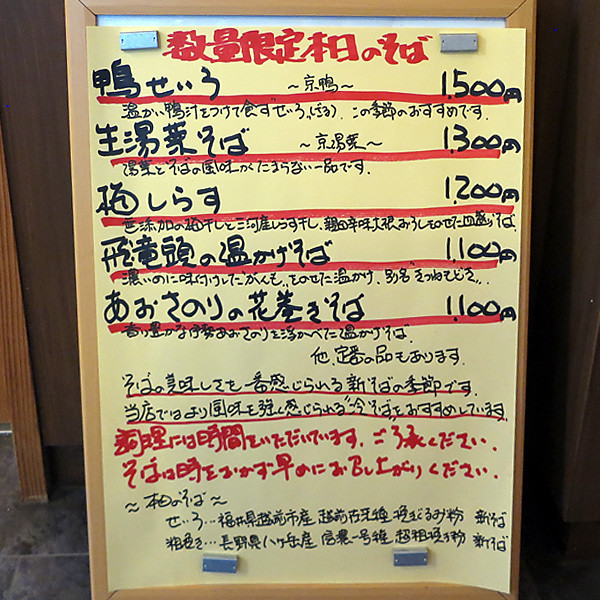 数量限定本日のそば
鴨せいろ 〜京鴨〜 1,500円
温かい鴨汁をつけて食すせいろ(ざる)。この季節のおすすめです。
生湯葉そば 〜京湯葉〜 1,300円
湯葉とそばの風味がたまらない一品です。
梅しらす 1,200円
無添加の梅干しと三河産しらす干し、親田辛味大根おろしをのせた皿盛りそば。
飛竜頭の温かけそば 1,100円
濃いめに味付けしたがんもをのせた温かけ、別名きつねもどき。
あおさのりの花巻きそば 1,100円
香り豊かな伊勢あおさのりを浮かべた温かけそば。
他、定番の品もあります。
そばの美味しさを一番感じられる新そばの季節です。
当店ではより風味を強く感じられる"冷そば"をおすすめしています。
調理には時間をいただいています。ご了承ください。
そばは時をおかず早めにお召し上がりください。
〜本日のそば〜
せいろ…福井県越前市産 越前在来種 挽きぐるみ粉 新そば
粗挽き…長野県八ヶ岳産 信濃一号種 超粗挽き粉 新そば